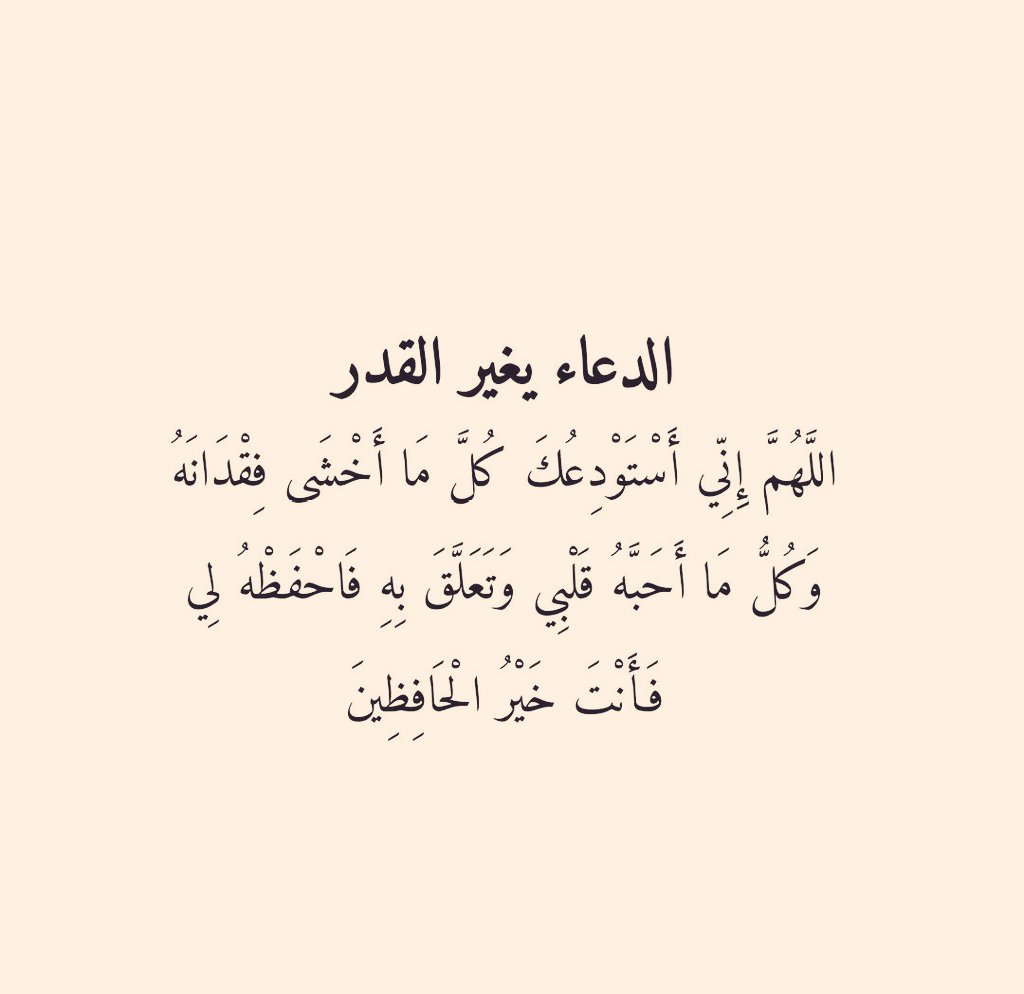 الدعاء يغير القدر
اللَّهُمَّ إِنِّي أَسْتَوْدِعُكَ كُلَّ مَا أَخْشَى فِقْدَانَهُ
وَكُلُّ مَا أَحَبَّهُ قَلْبِي وَتَعَلَّقَ بِهِ فَاحْفَظْهُ لِي
فَأَنْتَ خَيْرُ الْحَافِظِينَ